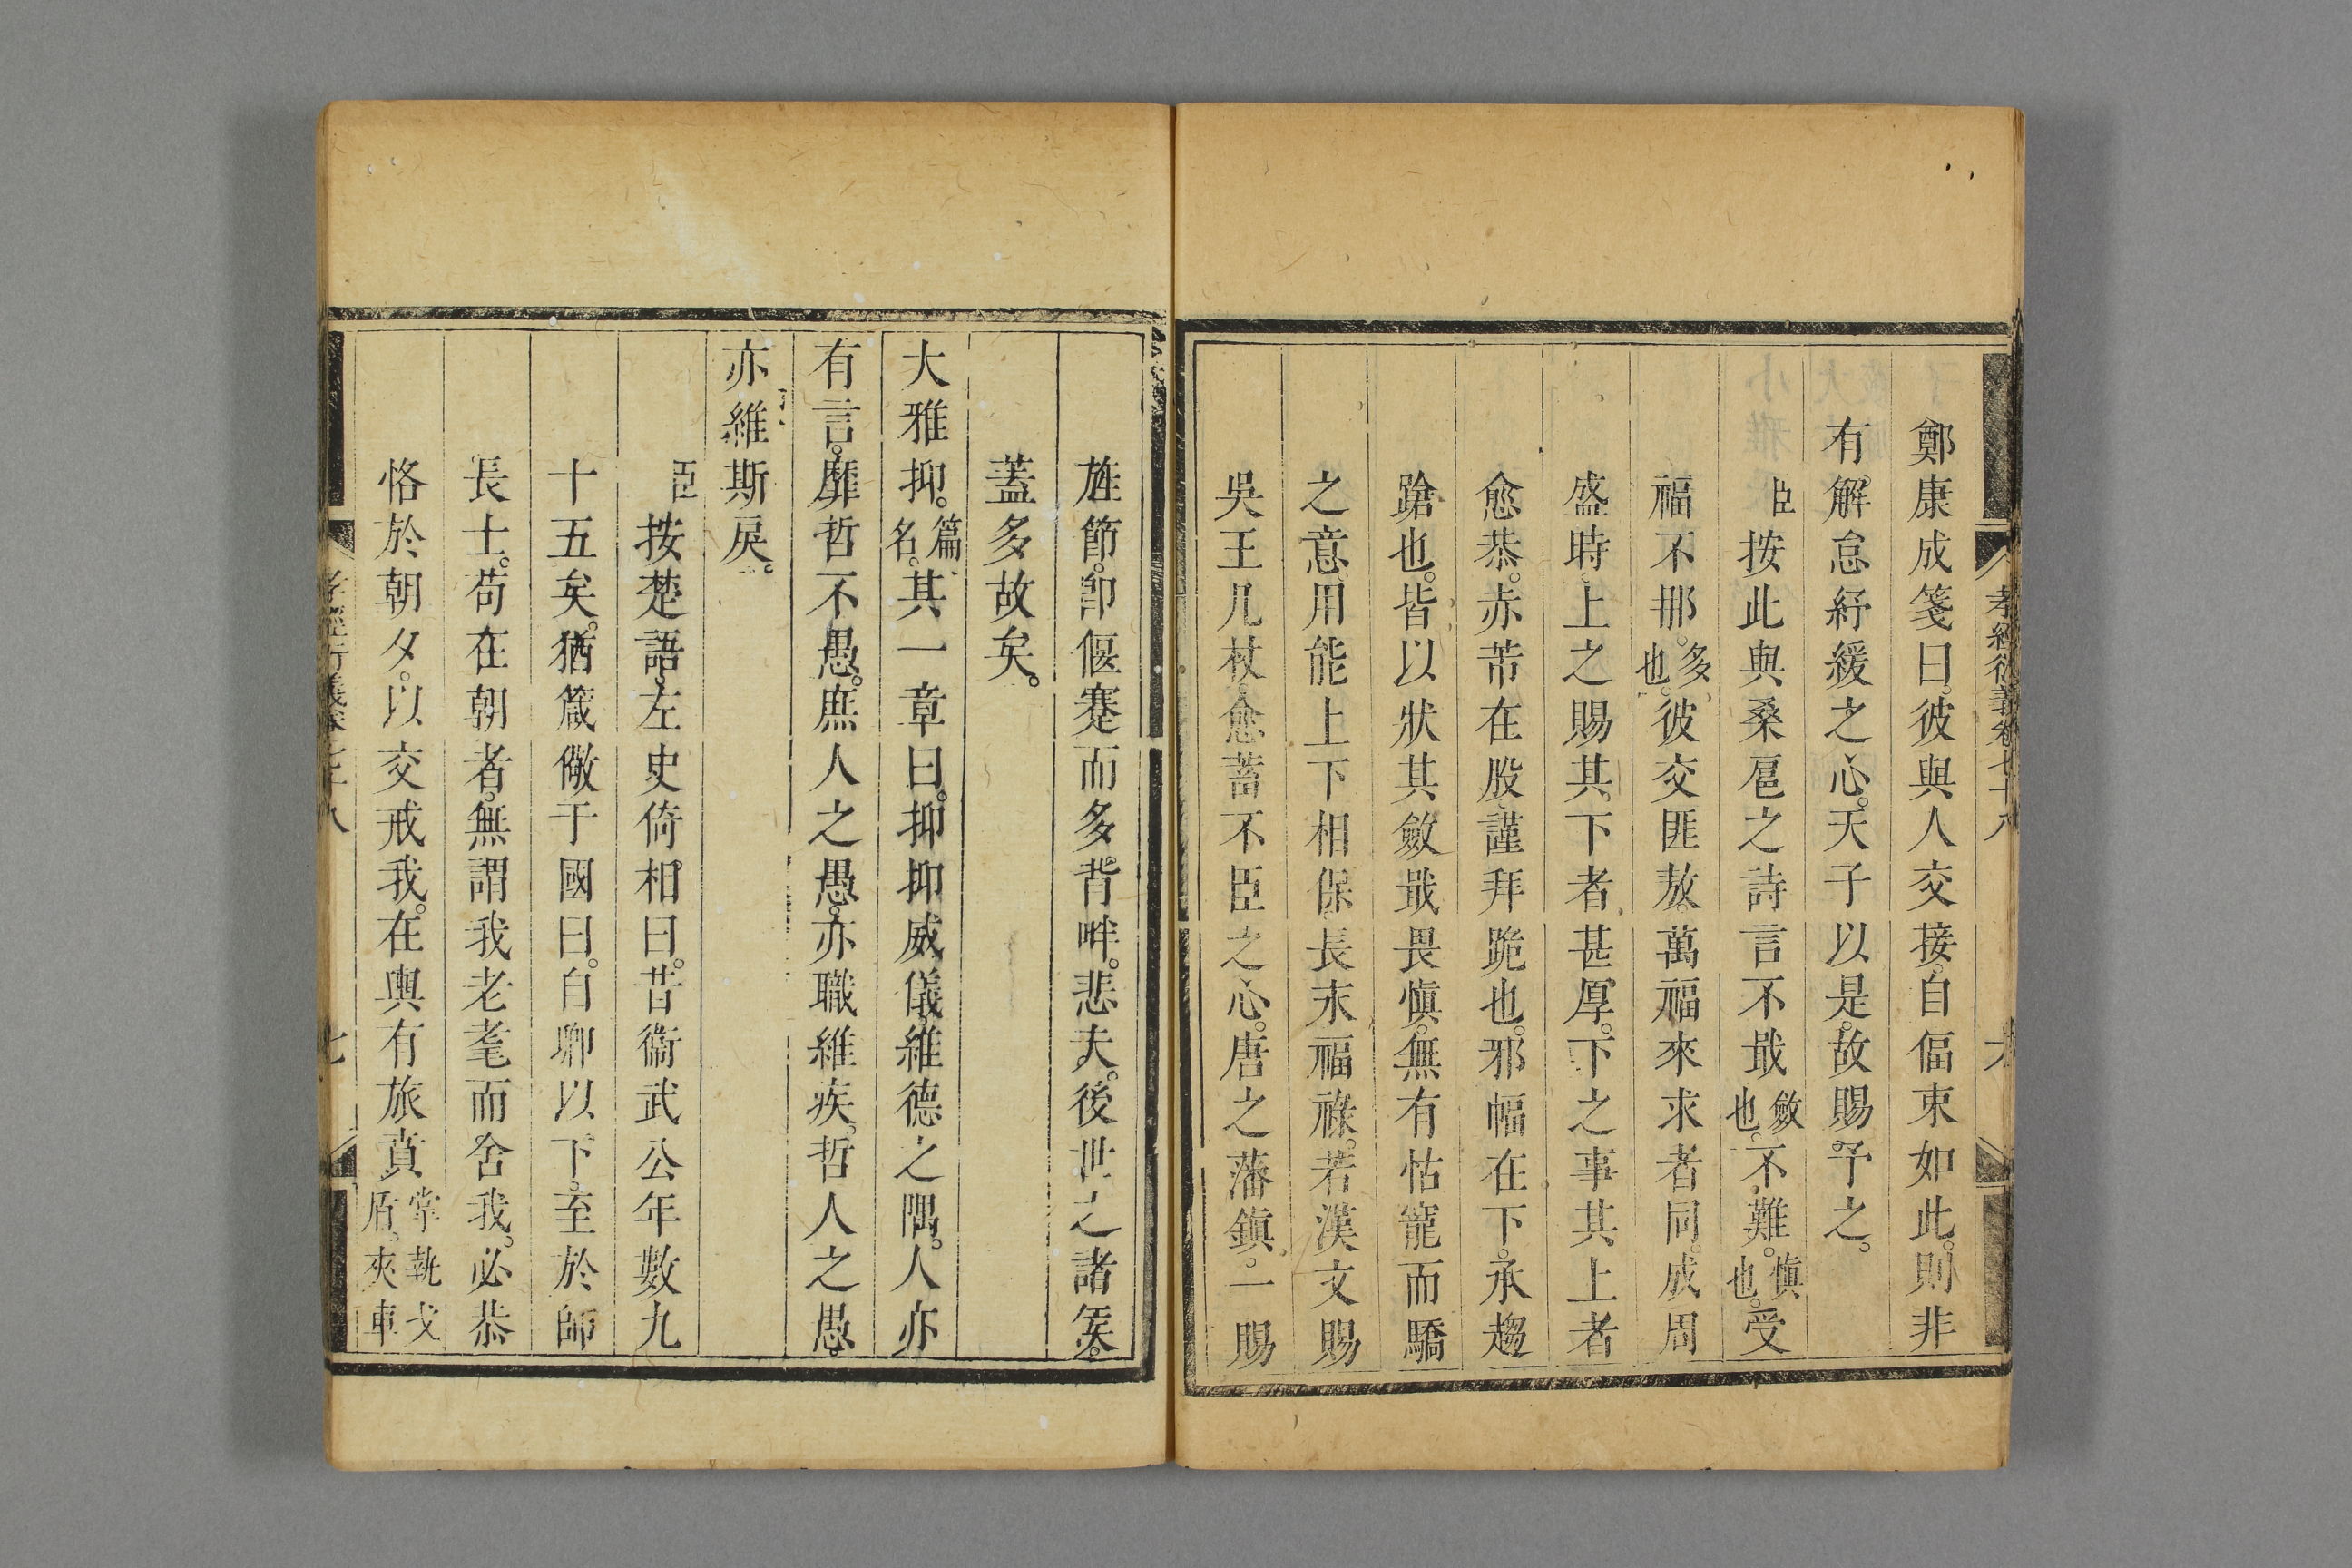 孝經衍義卷七十八　六
鄭康成箋曰。彼與人交接。自偪束如此。則非
有解怠紓緩之心。天子以是。故賜予之。
臣按此與桑扈之詩言不戢斂也。不難。愼也。受
福不那。多也。彼交匪敖。萬福來求者同。成周
盛時。上之賜其下者甚厚。下之事其上者
愈恭。赤芾在股。謹拜跪也。邪幅在下。承趨
蹌也。皆以狀其斂戢畏愼。無有怙寵而驕
之意。用能上下相保。長末福祿。若漢文賜
吳王几杖。愈蓄不臣之心。唐之藩鎭。一賜
旌節。卽偃蹇而多背畔。悲夫。後世之諸矦。
蓋多故矣。
大雅抑。篇名。其一章曰。抑抑威儀。維德之隅。人亦
有言。靡哲不愚。庶人之愚。亦職維疾。哲人之愚。
亦維斯戾。
臣按楚語。左史倚相曰。昔衞武公年數九
十五矣。猶箴儆于國曰。自卿以下。至於師
長士。苟在朝者。無謂我老耄而舍我。必恭
恪於朝夕。以交戒我。在輿有旅賁掌執戈盾。夾車
孝經衍義卷七十八　七